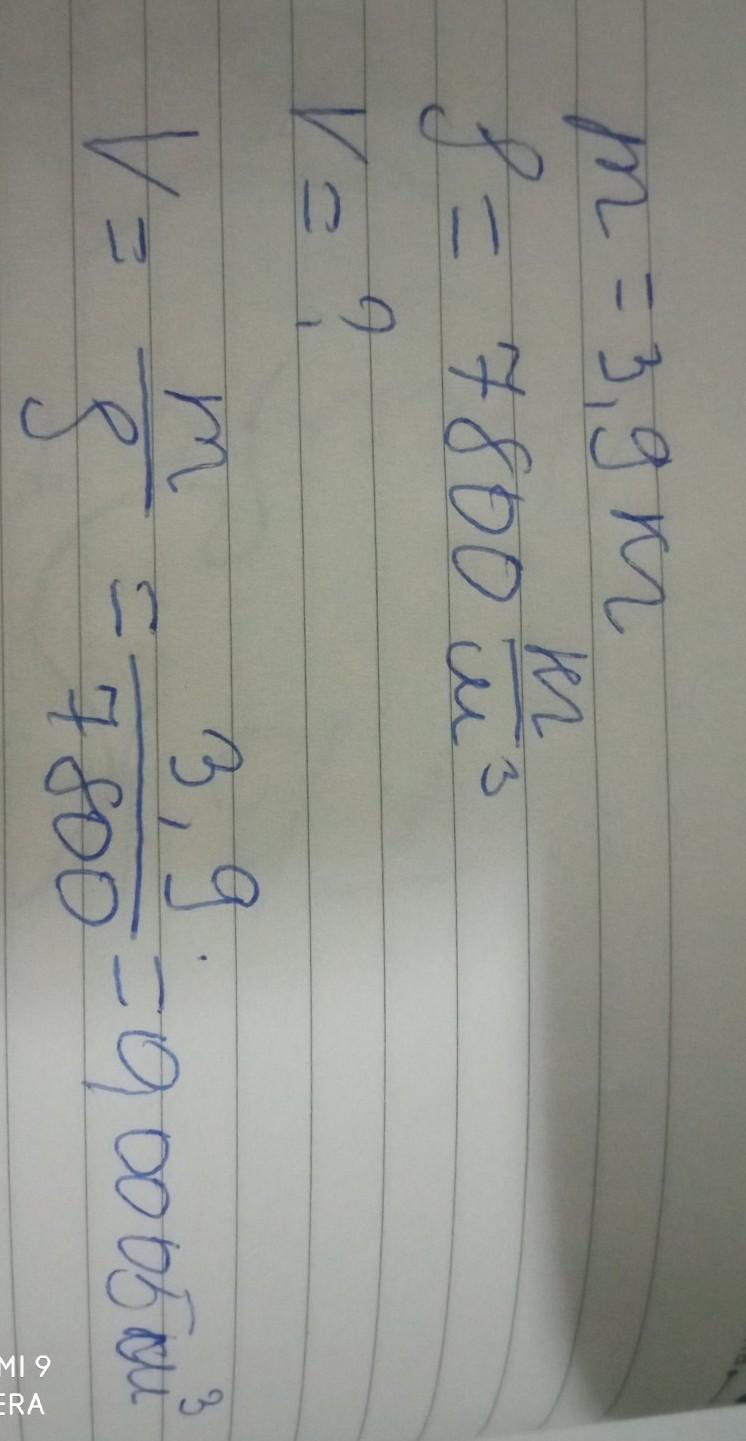 m = 3,9 кг
ρ = 7800 кг/м³
V = ?
V = m/ρ = 3,9/7800 = 0,0005 м³
MI 9
ERA